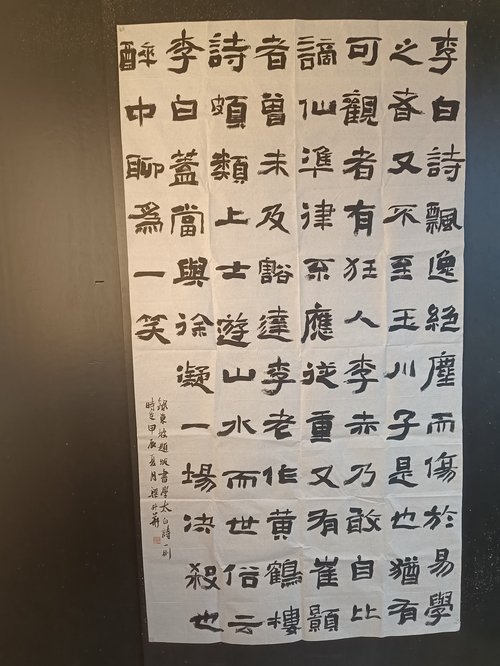 李白詩飄逸絕塵而傷於易學
之者又不至玉川子是也猶有
可觀者有狂人李赤乃敢自比
謫仙準律不應從重又有崔顥
者曾未及豁達李老作黃鶴樓
詩頗類上士遊山水而世俗云
李白蓋當與徐凝一場決殺也
醉中聊爲一笑
錄東坡題跋書學太白詩一則
時在甲辰夏月